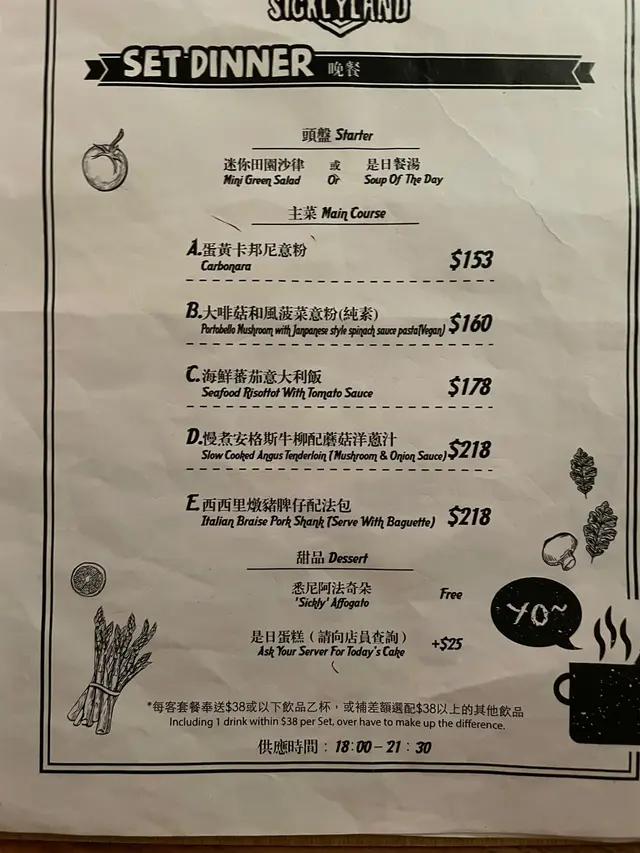 SICKLYLAND
SET DINNER 晚餐
頭盤 Starter
迷你田園沙律 或 是日餐湯
Mini Green Salad Or Soup Of The Day
主菜 Main Course
A.蛋黃卡邦尼意粉
Carbonara $153
B.大啡菇和風菠菜意粉(純素)
Portobello Mushroom with Janpanese style spinach sauce pasta(Vegan) $160
C.海鮮蕃茄意大利飯
Seafood Risottot With Tomato Sauce $178
D.慢煮安格斯牛柳配蘑菇洋蔥汁
Slow Cooked Angus Tenderloin (Mushroom & Onion Sauce) $218
E.西西里燉豬髀仔配法包
Italian Braise Pork Shank (Serve With Baguette) $218
甜品 Dessert
悉尼阿法奇朵
'Sickly' Affogato Free
是日蛋糕（請向店員查詢）
Ask Your Server For Today's Cake +$25
YO~
*每客套餐奉送$38或以下飲品乙杯，或補差額選配$38以上的其他飲品
Including 1 drink within $38 per Set, over have to make up the difference.
供應時間：18:00-21：30